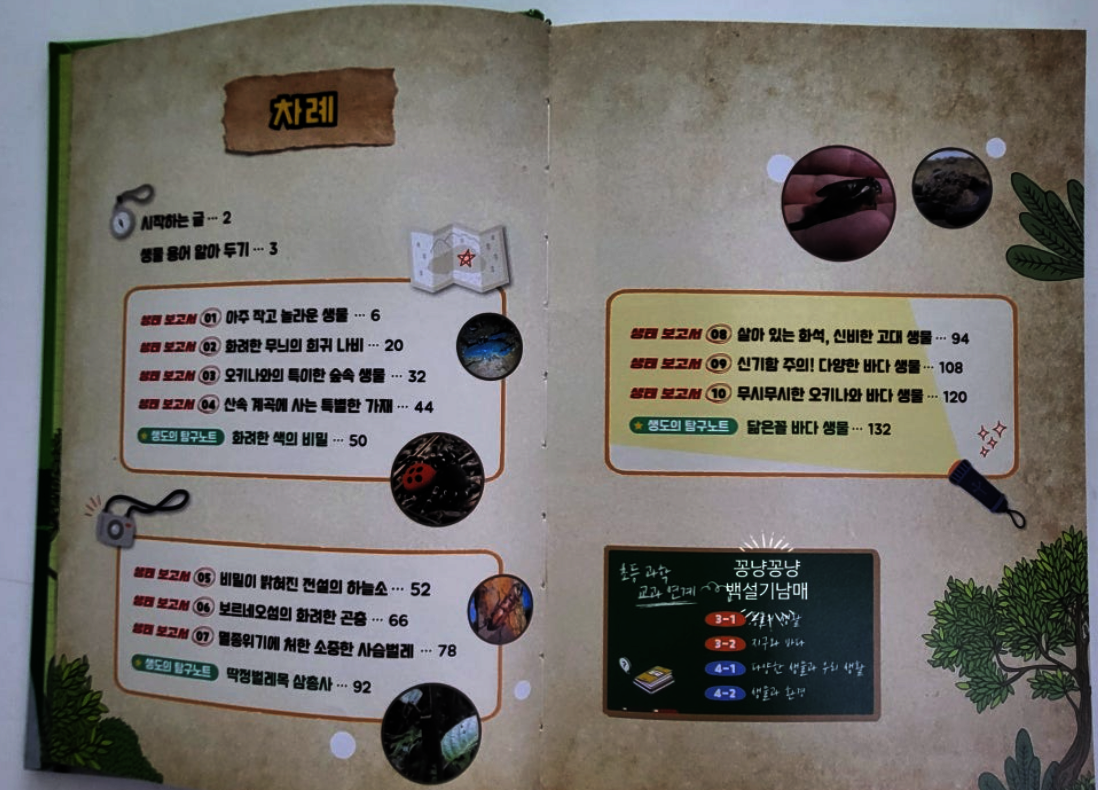 차례
시작하는 글 ··· 2
생물 용어 알아 두기 ··· 3
생태 보고서 01 아주 작고 놀라운 생물 ··· 6
생태 보고서 02 화려한 무늬의 희귀 나비 ··· 20
생태 보고서 03 오키나와의 특이한 숲속 생물 ··· 32
생태 보고서 04 산속 계곡에 사는 특별한 가재 ··· 44
★ 생도의 탐구노트 화려한 색의 비밀 ··· 50
생태 보고서 05 비밀이 밝혀진 전설의 하늘소 ··· 52
생태 보고서 06 보르네오섬의 화려한 곤충 ··· 66
생태 보고서 07 멸종위기에 처한 소중한 사슴벌레 ··· 78
★ 생도의 탐구노트 딱정벌레목 삼총사 ··· 92
생태 보고서 08 살아 있는 화석, 신비한 고대 생물 ··· 94
생태 보고서 09 신기함 주의! 다양한 바다 생물 ··· 108
생태 보고서 10 무시무시한 오키나와 바다 생물 ··· 120
★ 생도의 탐구노트 닮은꼴 바다 생물 ··· 132
초등 과학
교과 연계
꽁냥꽁냥
백설기남매
3-1 생활
3-2 지구와 바다
4-1 다양한 생물과 우리 생활
4-2 생물과 환경